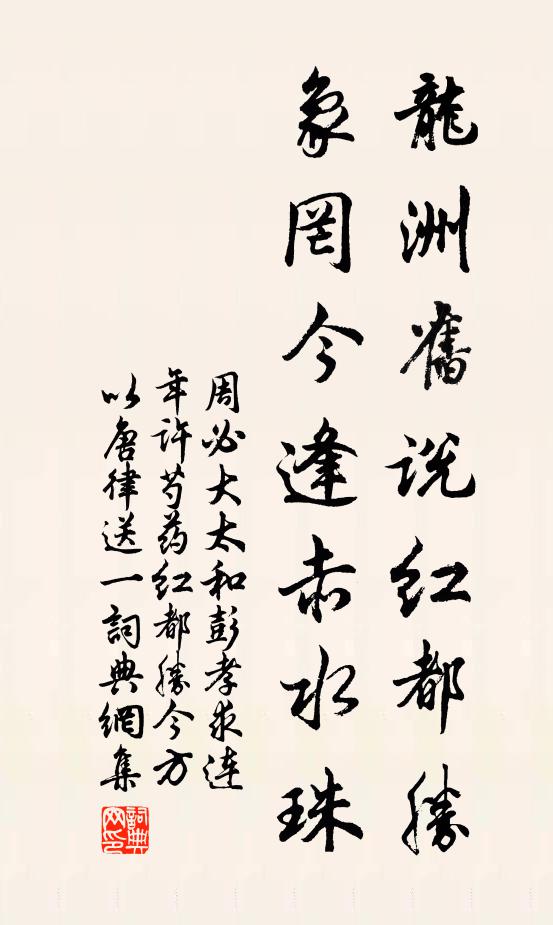 龍洲舊说红都勝
象罔今逢赤水珠
周必大太和彭孝求连
年许芍药红都勝今方
以唐律送一詞典網集
詞典網印